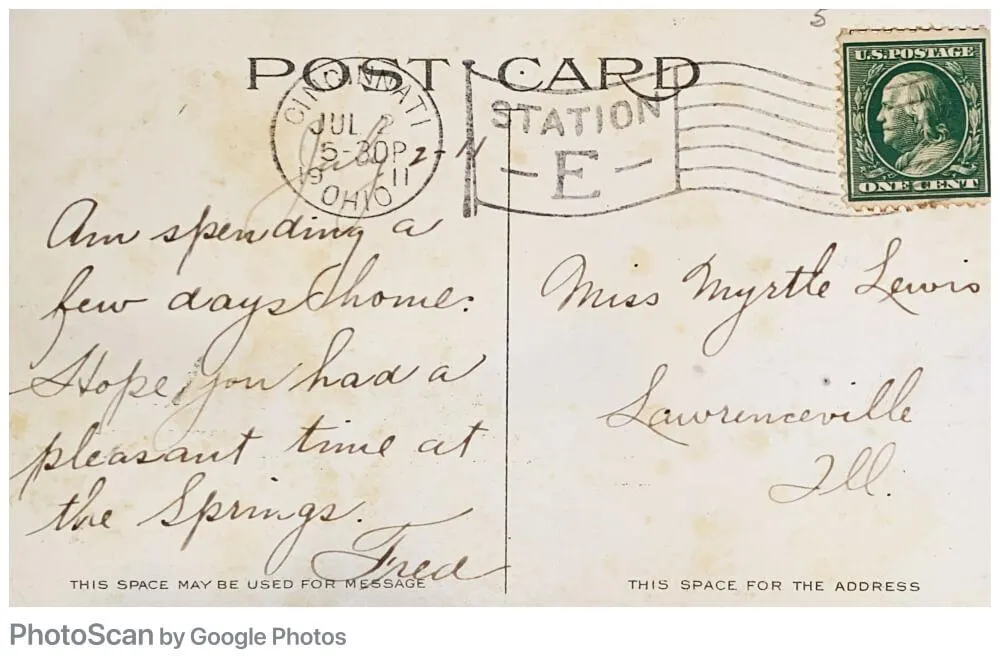 5
POST CARD
U.S. POSTAGE
ONE CENT
CINCINNATI
JUL 2
5-30P
1911
OHIO
STATION
- E -
July 2-11
Am spending a
few days home:
Hope you had a
pleasant time at
the Springs.
Fred
THIS SPACE MAY BE USED FOR MESSAGE
Miss Myrtle Lewis
Lawrenceville
Ill.
THIS SPACE FOR THE ADDRESS
PhotoScan by Google Photos